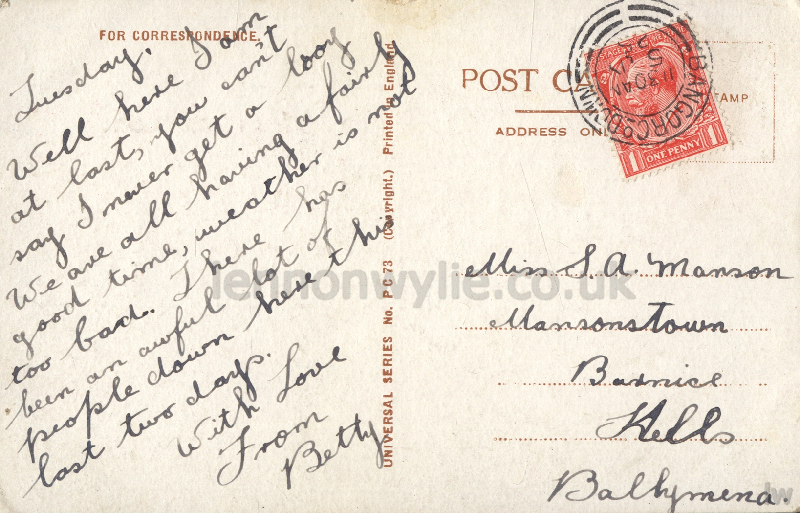 FOR CORRESPONDENCE.
Tuesday,
Well here I am
at last, you can't
say I never get a looy
We are all having a fairly
good time, weather is not
too bad. There has
been an awful lot of
people down here this
last two days.
With Love
From
Betty
UNIVERSAL SERIES No. P C 73 (Copyright.) Printed in England
POST CA
STAMP
ADDRESS ONL
BANGOR CO DOWN
11 30 AM
5
ONE PENNY
1 1
Miss S. A. Manson
Mansonstown
Barnice
Kells
Ballymena.
lennonwylie.co.uk
lw